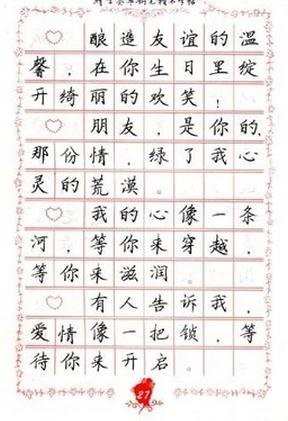 酿造友谊的温
馨，在你生日里绽
开绮丽的欢笑！
朋友，是你的
那份情，绿了我心
灵的荒漠。
我的心像一条
河，等你来穿越，
等你来滋润。
有人告诉我，
爱情像一把锁，等
待你来开启。
27